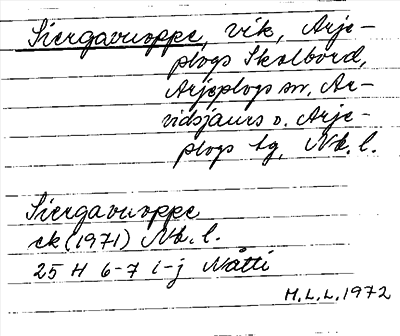 Siergavuoppe, vik, Arje-
plogs Skolbord,
Arjeplogs sn, Ar-
vidsjaurs o. Arje-
plogs tg, Nb. l.
Siergavuoppe
ek (1971) Nb. l.
25 H 6-7 i-j Nåtti
H.L.L. 1972